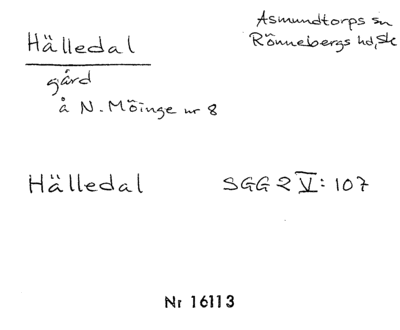 Hälledal
Asmundtorps sn
Rönnebergs hd, Sk
gård
å N. Möinge nr 8
Hälledal
SGG 2 V: 107
Nr 16113